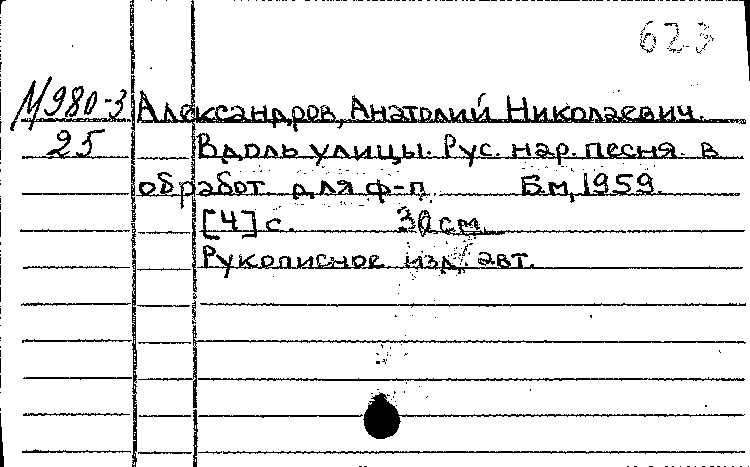 623
М980-3 Александров, Анатолий Николаевич.
25 Вдоль улицы. Рус. нар. песня в
обработ. для ф-п. Б.м, 1959.
[4] с. 30 см.
Рукописное изд. авт.